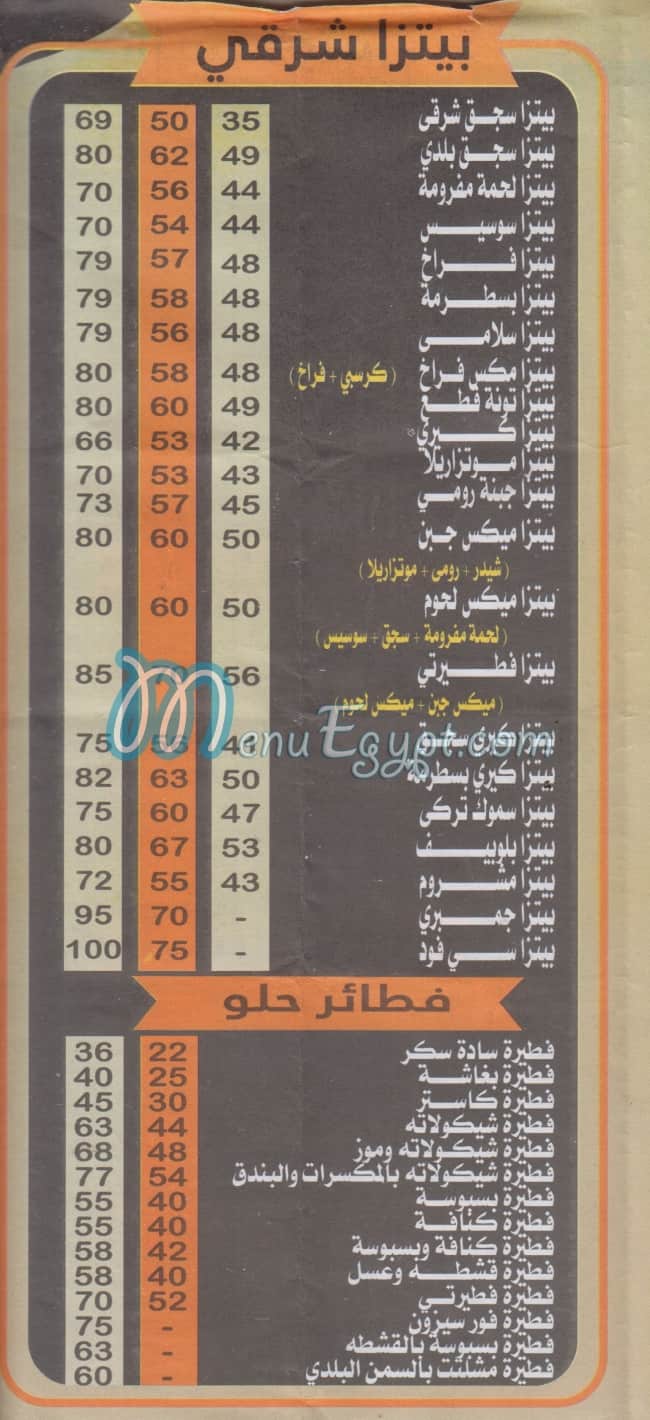 بيتزا شرقي
بيتزا سجق شرقى 35 50 69
بيتزا سجق بلدي 49 62 80
بيتزا لحمة مفرومة 44 56 70
بيتزا سوسيس 44 54 70
بيتزا فراخ 48 57 79
بيتزا بسطرمة 48 58 79
بيتزا سلامى 48 56 79
بيتزا مكس فراخ (كرسبي + فراخ) 48 58 80
بيتزا تونة قطع 49 60 80
بيتزا كيري 42 53 66
بيتزا موتزاريلا 43 53 70
بيتزا جبنة رومي 45 57 73
بيتزا ميكس جبن 50 60 80
(شيدر + رومى + موتزاريلا)
بيتزا ميكس لحوم 50 60 80
(لحمة مفرومة + سجق + سوسيس)
بيتزا فطيرتي 56 85
(ميكس جبن + ميكس لحوم)
بيتزا كيري سجق 75
بيتزا كيري بسطرمة 50 63 82
بيتزا سموك تركى 47 60 75
بيتزا بلوبيف 53 67 80
بيتزا مشروم 43 55 72
بيتزا جمبري - 70 95
بيتزا سي فود - 75 100
MenuEgypt.com
فطائر حلو
فطيرة سادة سكر 22 36
فطيرة بغاشة 25 40
فطيرة كاستر 30 45
فطيرة شيكولاته 44 63
فطيرة شيكولاته وموز 48 68
فطيرة شيكولاته بالمكسرات والبندق 54 77
فطيرة بسبوسة 40 55
فطيرة كنافة 40 55
فطيرة كنافة وبسبوسة 42 58
فطيرة قشطه وعسل 40 58
فطيرة فطيرتي 52 70
فطيرة فور سيزون - 75
فطيرة بسبوسة بالقشطه - 63
فطيرة مشلتت بالسمن البلدي - 60